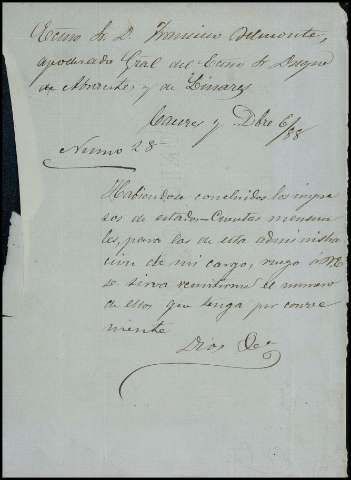 Ecmo Sr D. Francisco Belmonte,
apoderado Gral del Ecmo Sr Duque
de Abrantes y de Linares
Caceres y Dbre 6/88
Numo 28
Habiendose concluidos los impre
sos de estados-Cuentas mensua
les, para los de esta administra
cion de mi cargo, ruego á VE
se sirva remitirme el numero
de ellos que tenga por conve
niente
Dios &a